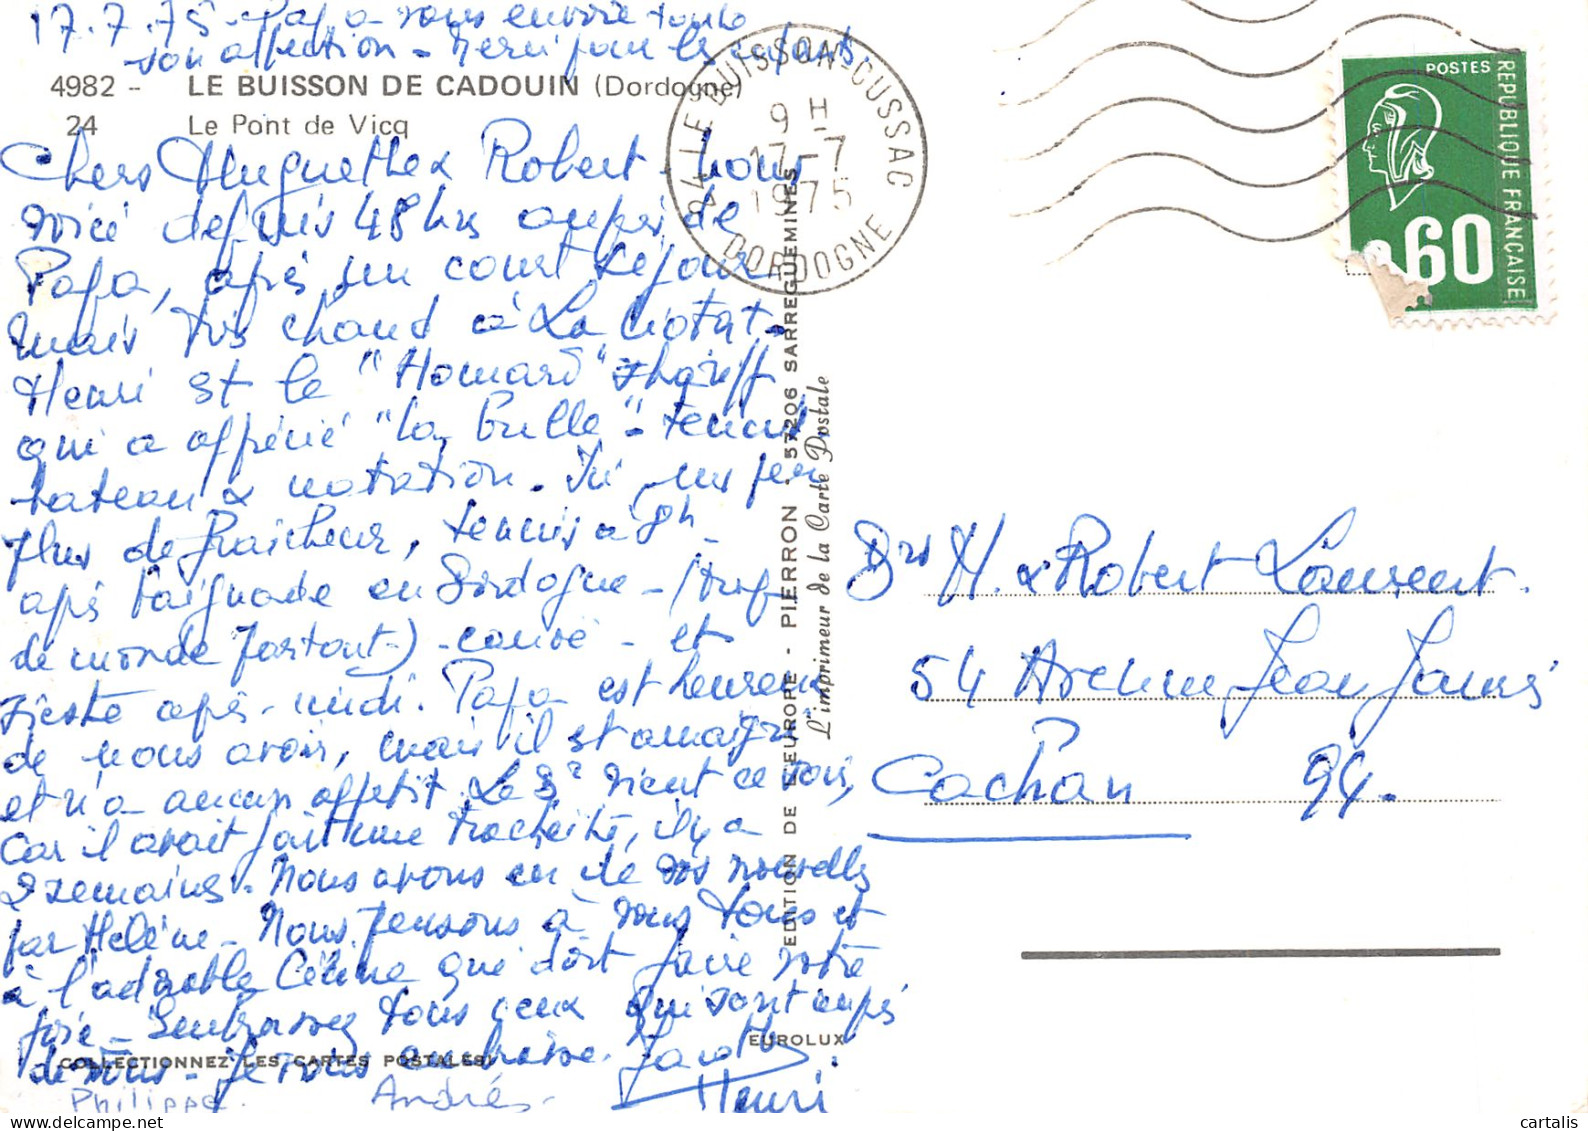 17.7.75 - Papa vous envoie toute
son affection - Merci pour les enfants.
4982 - LE BUISSON DE CADOUIN (Dordogne)
24 Le Pont de Vicq
Chers Huguette & Robert - nous
voici depuis 48 hrs auprès de
Papa, après un court séjour
mais très chaud à La Ciotat -
Henri est le "Homard"
qui a apprécié "la Bulle" - tennis
bateau & natation. Ici un peu
plus de fraîcheur, tennis à 8h -
après baignade en Dordogne - (trop
de monde partout) - et
sieste après-midi. Papa est heureux
de nous avoir, mais il est amaigri
et n'a aucun appétit. Le Dr vient ce soir,
car il avait fait une trachéite, il y a
2 semaines. Nous avons eu de vos nouvelles
par Hélène - Nous pensons à vous tous et
à l'adorable Céline qui doit faire votre
joie - Embrassez tous ceux qui sont auprès
de vous - Je vous embrasse.
Henri
Philippe. André -
COLLECTIONNEZ LES CARTES POSTALES!
EUROLUX
EDITION DE L'EUROPE - PIERRON - 57206 SARREGUEMINES
L'imprimeur de la Carte Postale
24 LE BUISSON-CUSSAC
9 H
17-7
1975
DORDOGNE
POSTES
REPUBLIQUE FRANÇAISE
0,60
M. & Robert Laurent.
54 Avenue Jean Jaurès
Cachan 94.
www.delcampe.net
cartalis